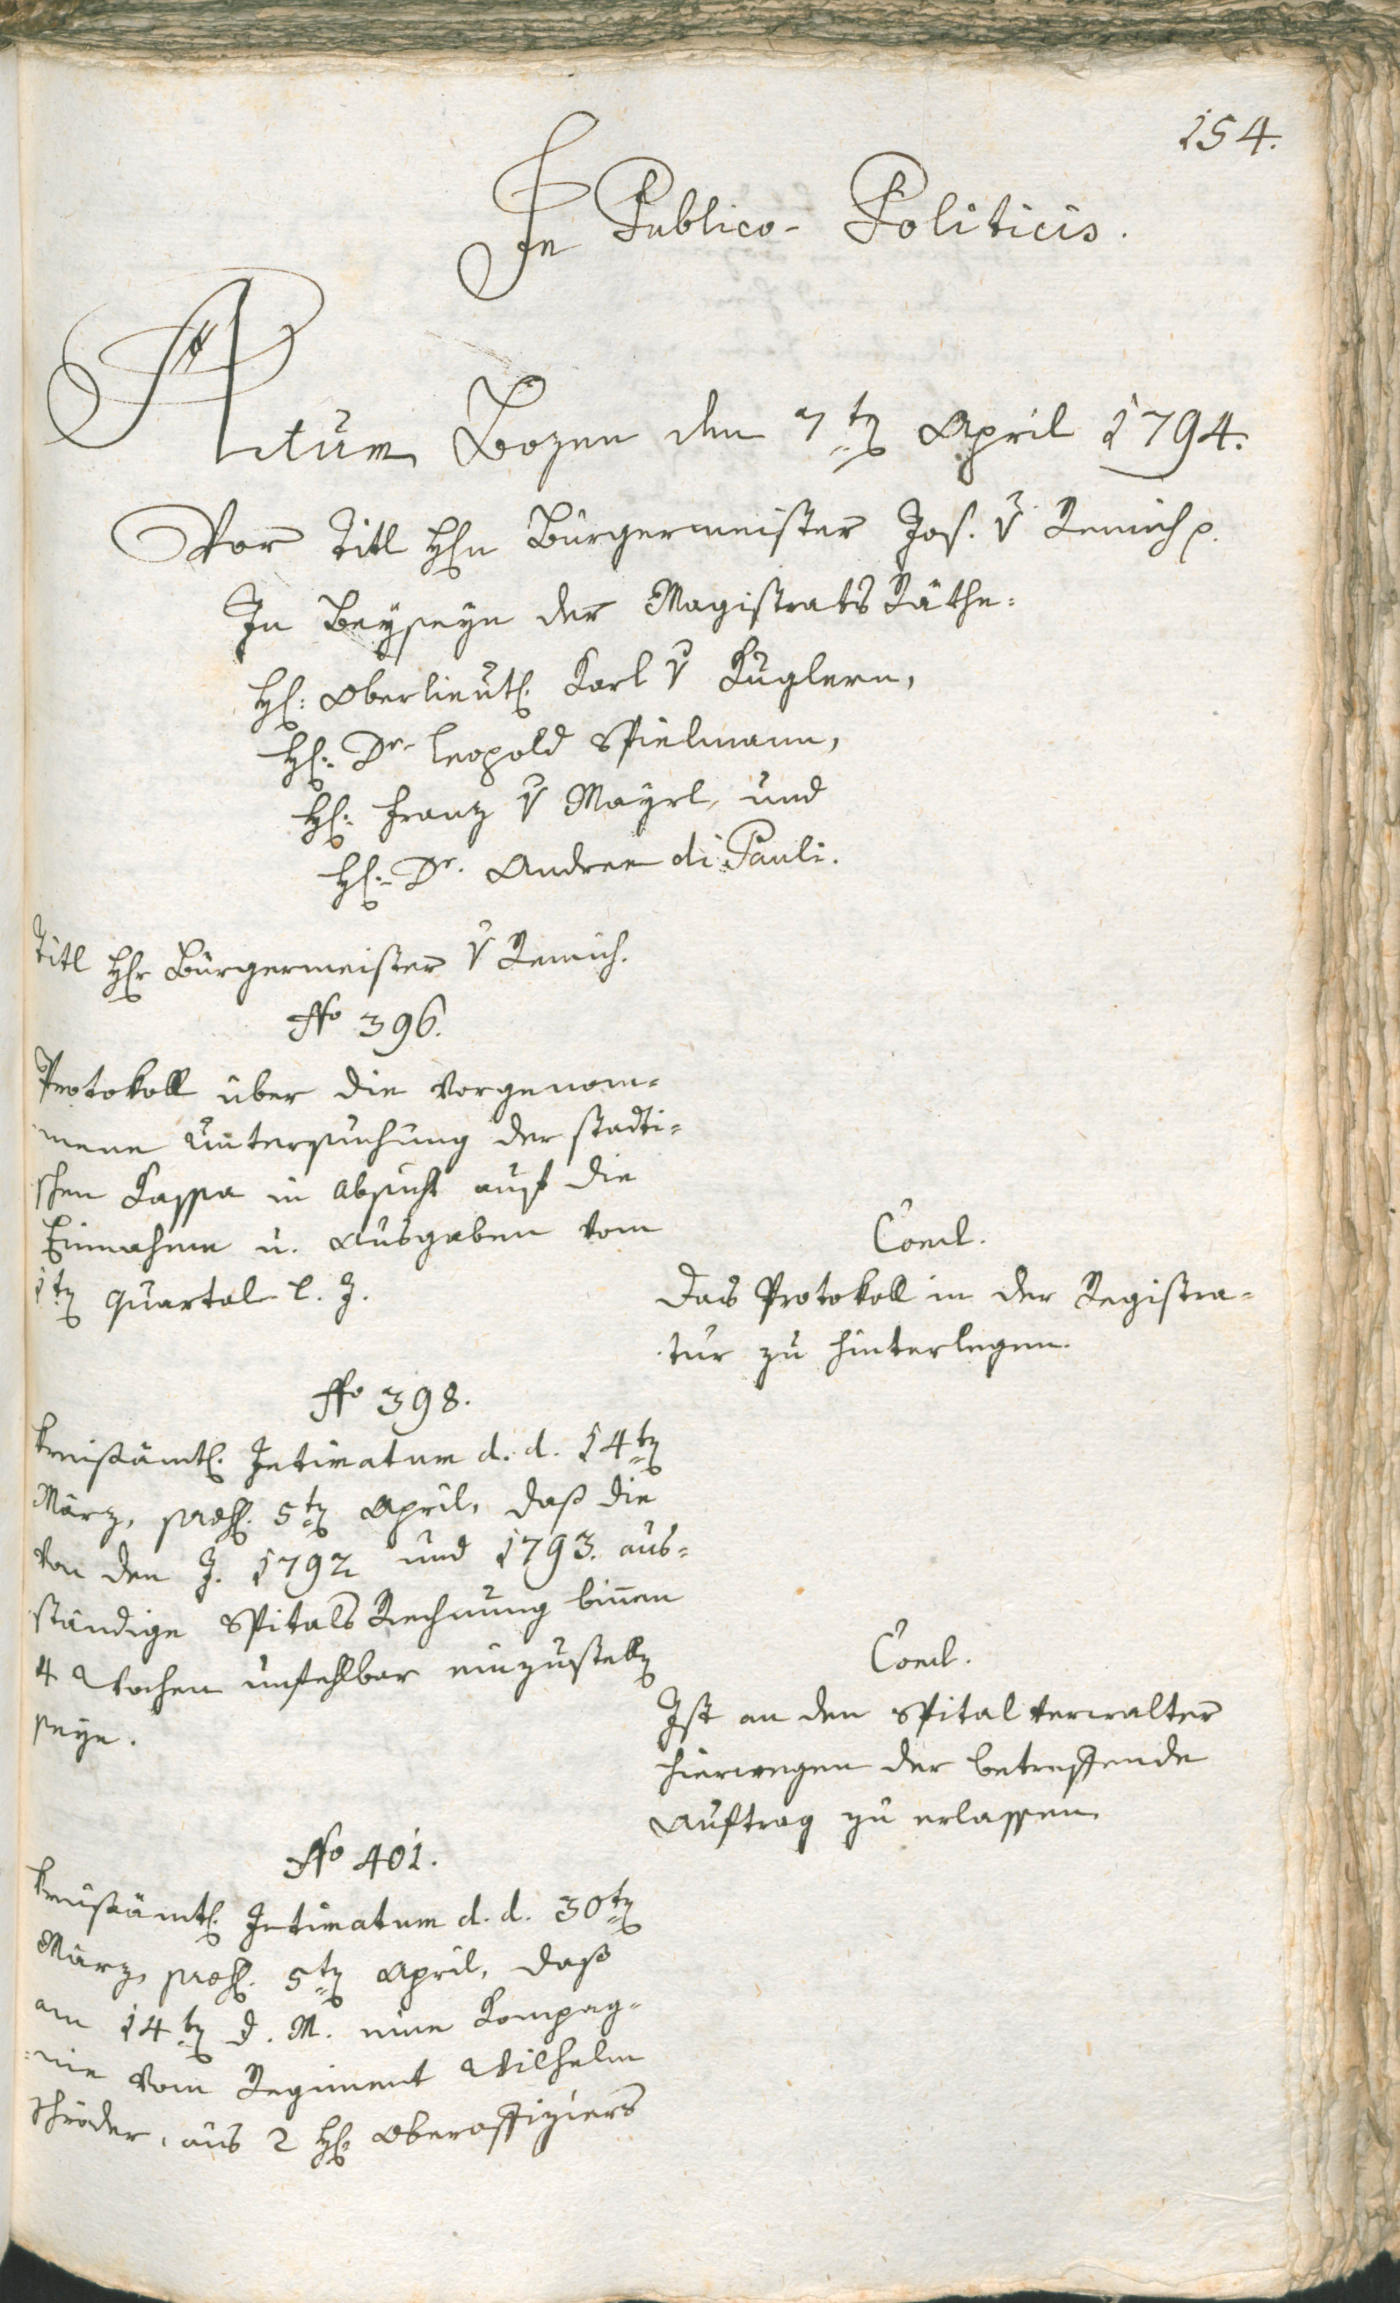 154.
In Publico-Politicis.
Actum Bozen den 7ten April 1794.
Vor Titl Hhn Bürgermeister Jos. v Remich p.
In Beyseyn der Magistrats Räthe:
H: Oberlieut. Karl v Kuglern,
H: Dr. Leopold Spielmann,
H: Franz v Mayrl, und
H: Dr. Andree di Pauli.
Titl Hhr Bürgermeister v Remich.
No 396.
Protokoll über die vorgenom=
mene Untersuchung der stadti=
schen Kassa in Absicht auf die
Einnahme u. Ausgaben vom
1ten Quartal l. J.
Concl.
Das Protokoll in der Registra=
tur zu hinterlegen.
No 398.
Kreißämtl. Intimatum d. d. 14ten
März, praes. 5ten April, daß die
von den J. 1792 und 1793. aus=
ständige Spitals Rechnung binnen
4 Wochen unfehlbar einzustellen
seye.
Concl.
Ist an den Spitalverwalter
hierwegen der betreffende
Auftrag zu erlassen.
No 401.
Kreißämtl. Intimatum d. d. 30ten
März, praes. 5ten April, daß
am 14ten d. M. eine Kompag=
=nie vom Regiment Wilhelm
Schröder, aus 2 H: Oberoffiziers